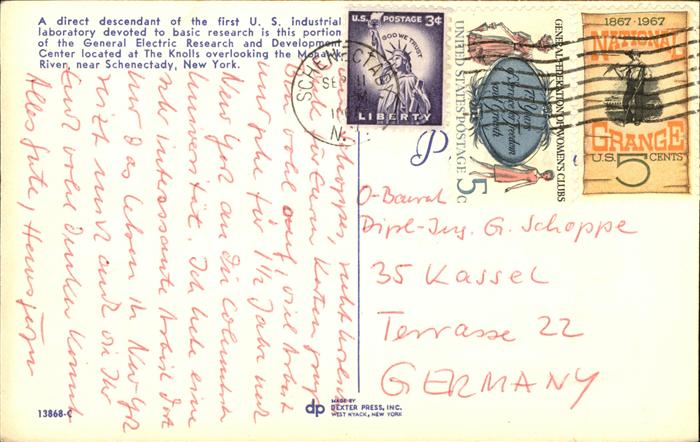 A direct descendant of the first U. S. industrial
laboratory devoted to basic research is this portion
of the General Electric Research and Development
Center located at The Knolls overlooking the Mohawk
River, near Schenectady, New York.
U.S. POSTAGE 3¢
IN GOD WE TRUST
LIBERTY
SCHENECTADY
SEP 11
N.
UNITED STATES POSTAGE 5c
75 Years of Service for Freedom and Growth
GENERAL FEDERATION OF WOMEN'S CLUBS
1867·1967
NATIONAL
GRANGE
U.S. 5 CENTS
Schoppes, recht
für Euren Karten
viel Arbeit
und gehe für 1½ Jahre nach
New York an die Columbia
Universität. Ich habe eine
sehr interessante Arbeit dort
und das Leben in New York
reizt mich auch
Alles Gute, Hansjürgen
O-Baurat
Dipl.-Ing. G. Schoppe
35 Kassel
Terrasse 22
GERMANY
13868-C
dp
MADE BY
DEXTER PRESS, INC.
WEST NYACK, NEW YORK